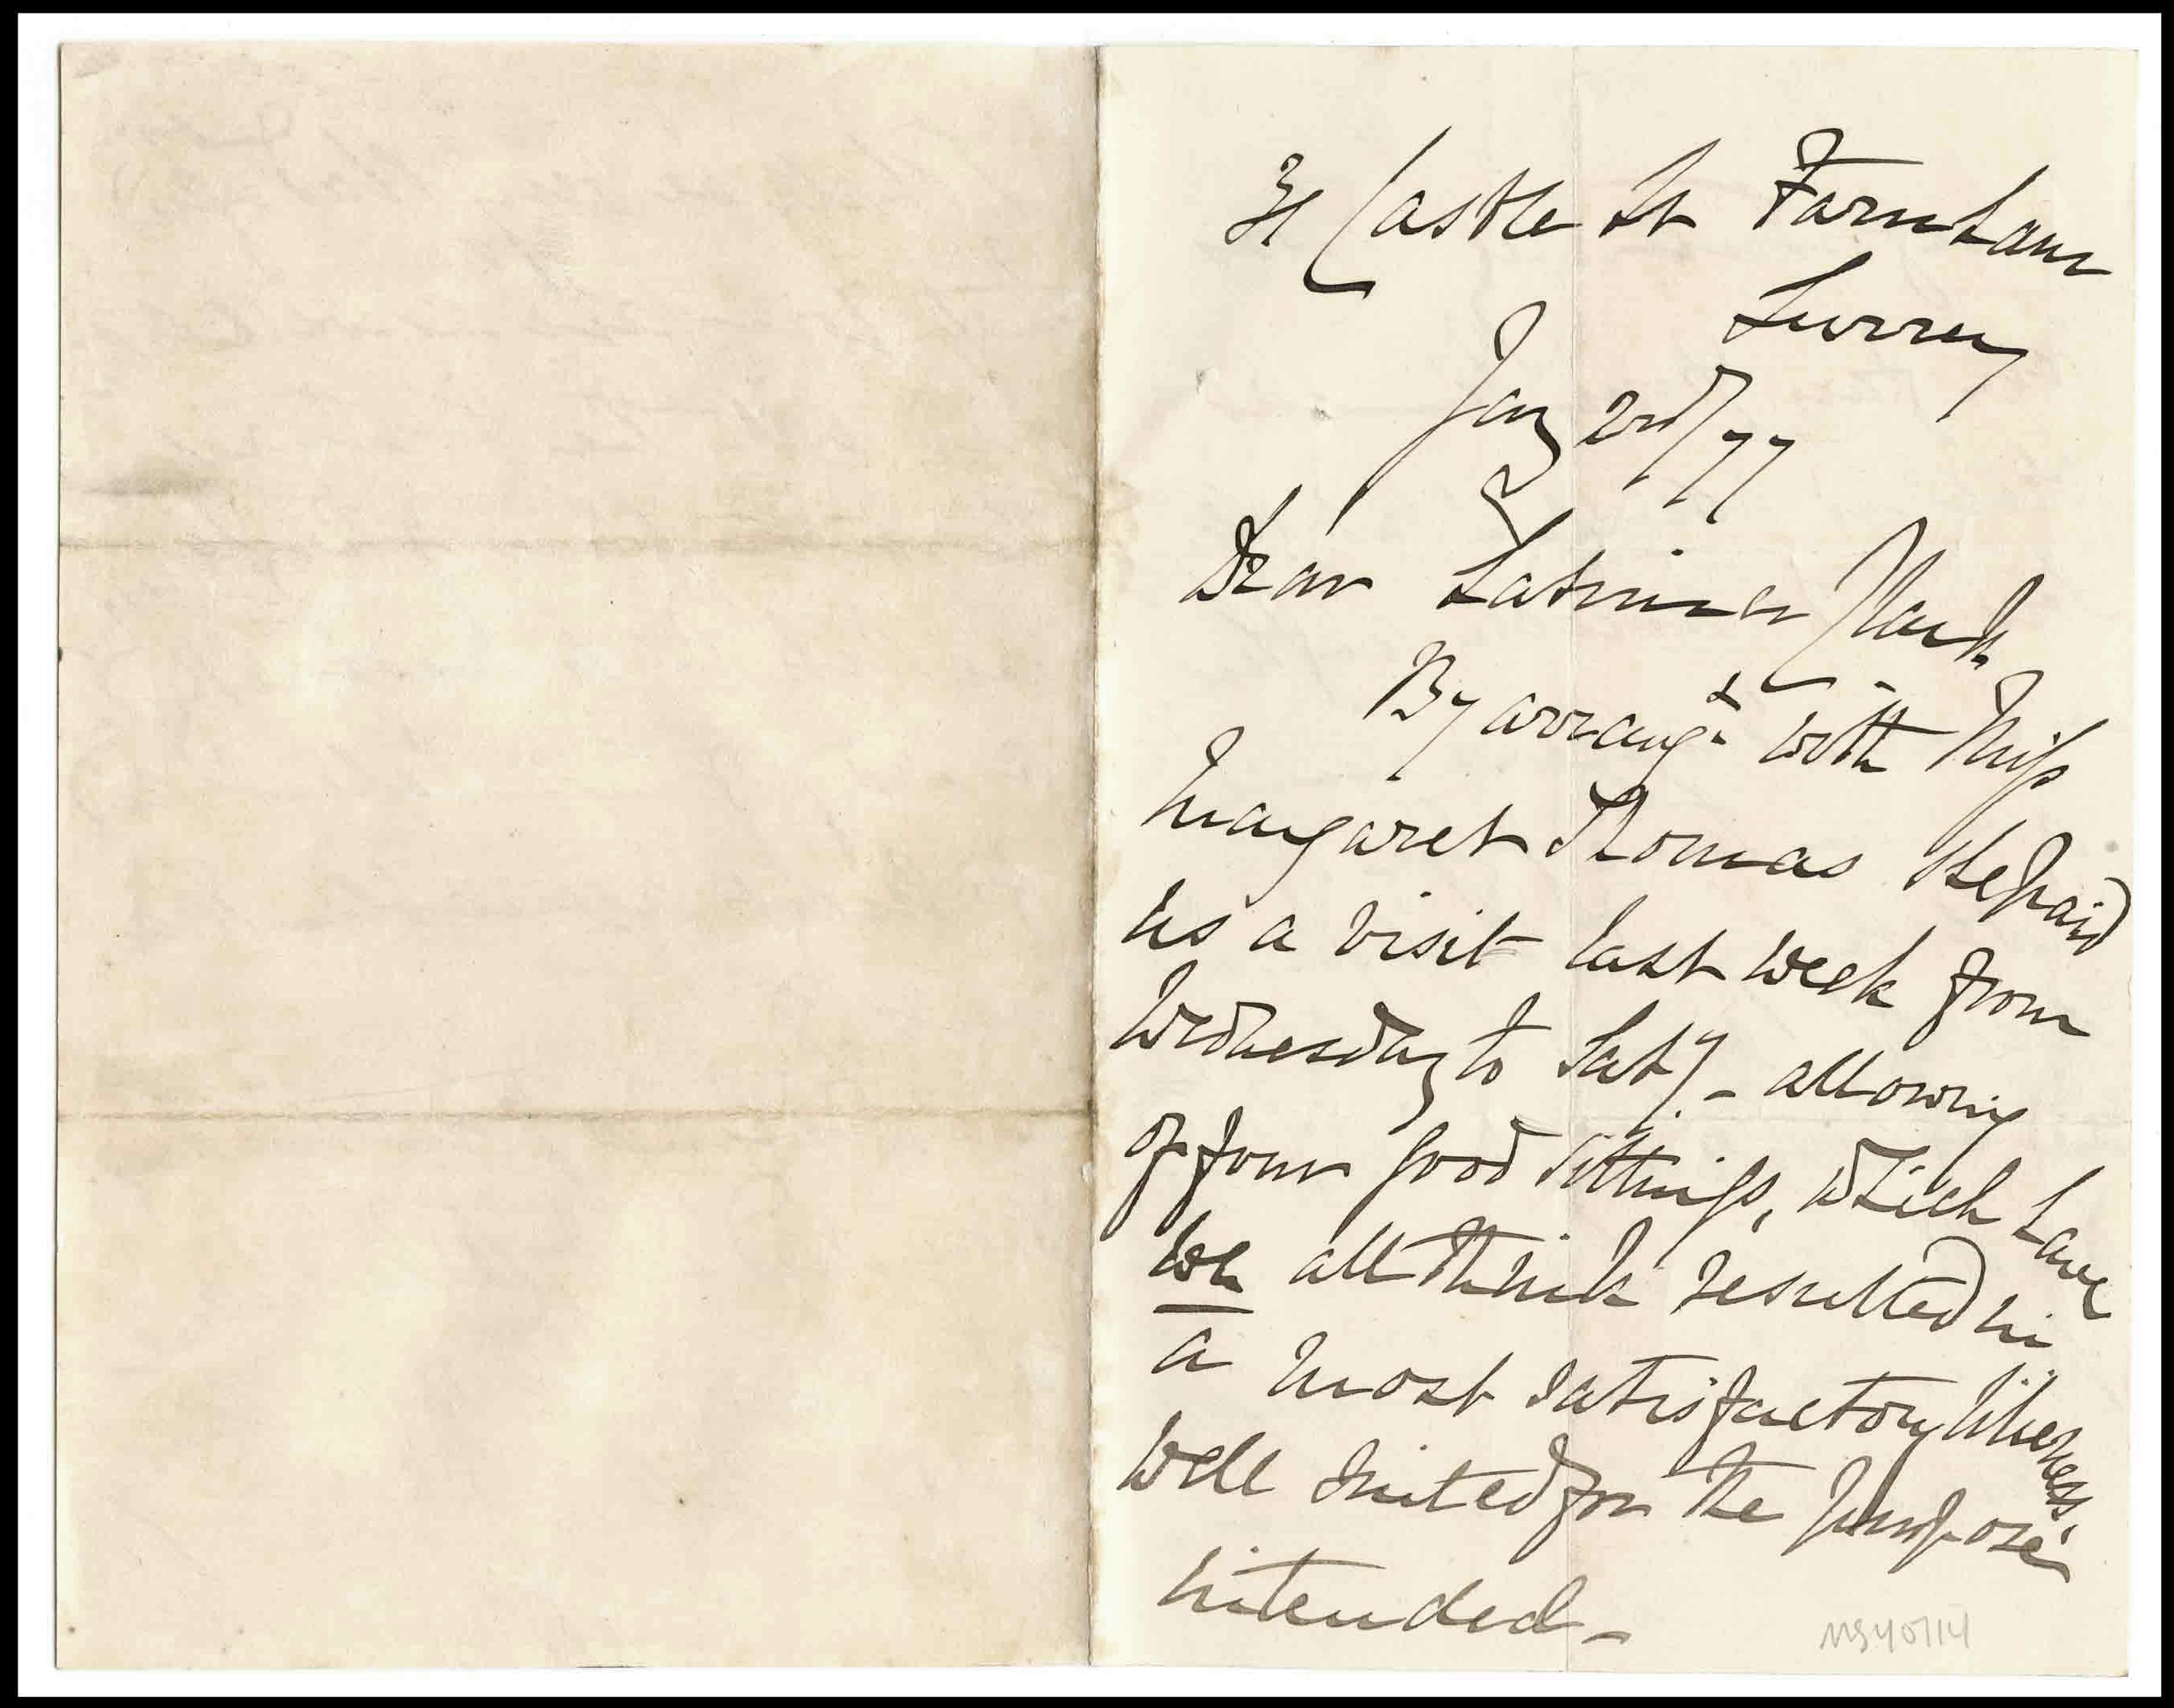 31 Castle St Farnham
Surrey
Jany 2nd/77
Dear Latimer Clark
By arrangt with Miss
Margaret Thomas She paid
us a visit last week from
Wednesday to Saty. - allowing
of four good sittings, which have
we all think resulted in
a most satisfactory likeness,
well suited for the purpose
intended -
MS40114